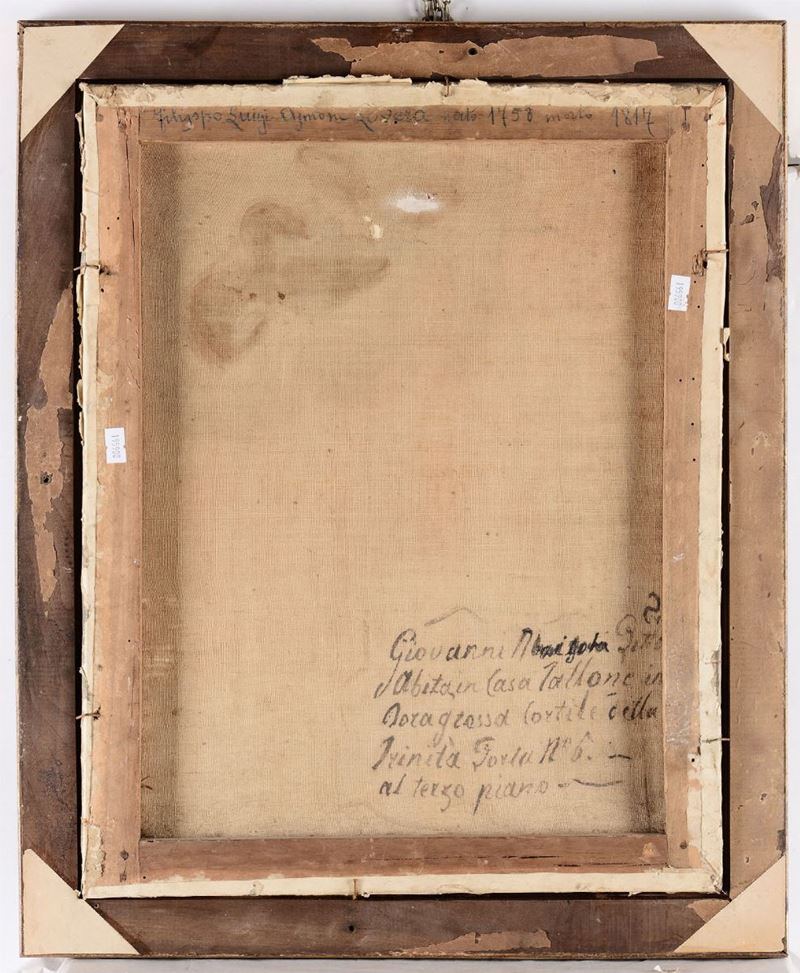 Filippo Luigi Aymone nato 1758 morto 1817
1995900
1995900
Giovanni
Abita in Casa Tallone in
Doragrossa Cortile della
Trinità Porta Nº 6.
al terzo piano